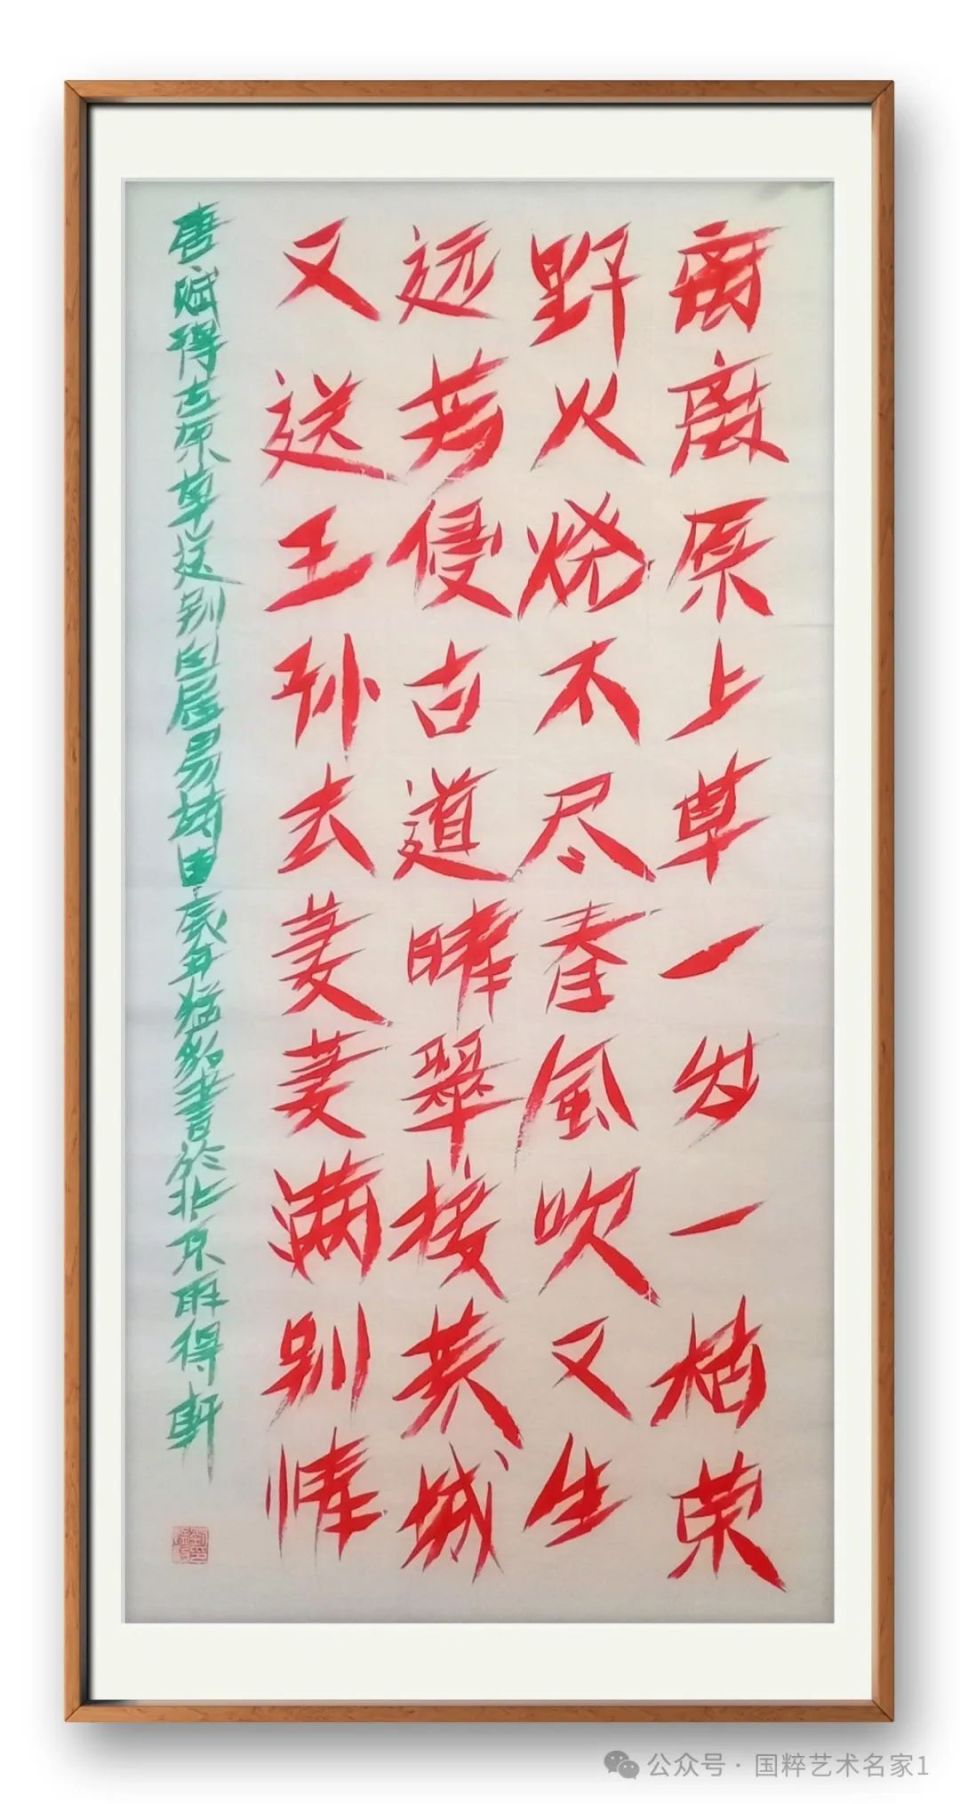 离离原上草一岁一枯荣
野火烧不尽春风吹又生
远芳侵古道晴翠接荒城
又送王孙去萋萋满别情
唐赋得古原草送别白居易诗甲辰年猛书於北京得軒
公众号 · 国粹艺术名家1